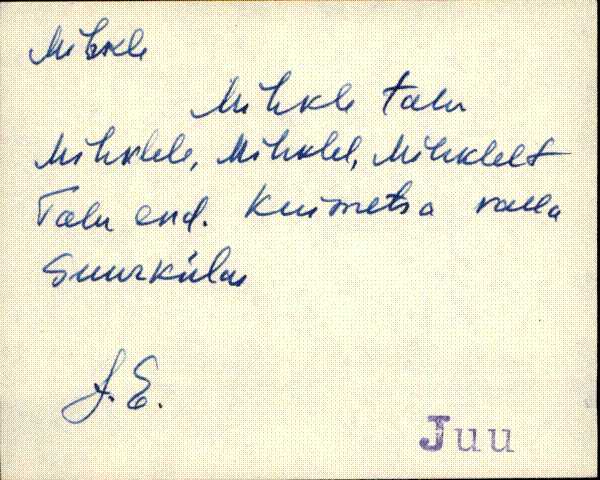 Mihkle
Mihkle talu
Mihklele, Mihklel, Mihklelt
Talu end. Kuimetsa valla
Suurkülas
J. E.
Juu